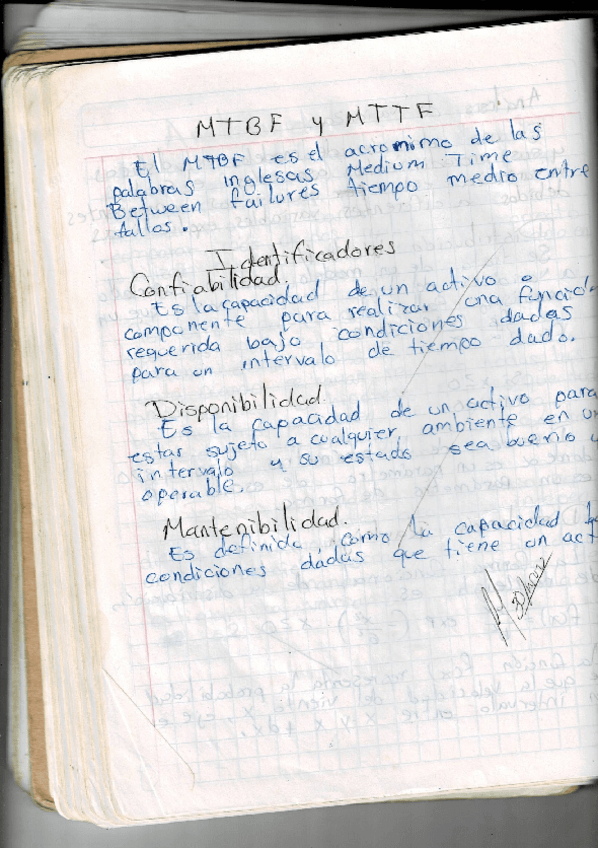 MTBF y MTTF
El MTBF es el acronimo de las
palabras inglesas Medium Time
Between failures tiempo medio entre
fallos.
Identificadores
Confiabilidad.
Es la capacidad de un activo o
componente para realizar una funció
requerida bajo condiciones dadas
para un intervalo de tiempo dado.
Disponibilidad
Es la capacidad de un activo para
estar sujeto a cualquier ambiente en un
intervalo y su estado sea bueno y
operable.
Mantenibilidad.
Es definida como la capacidad
condiciones dadas que tiene un act